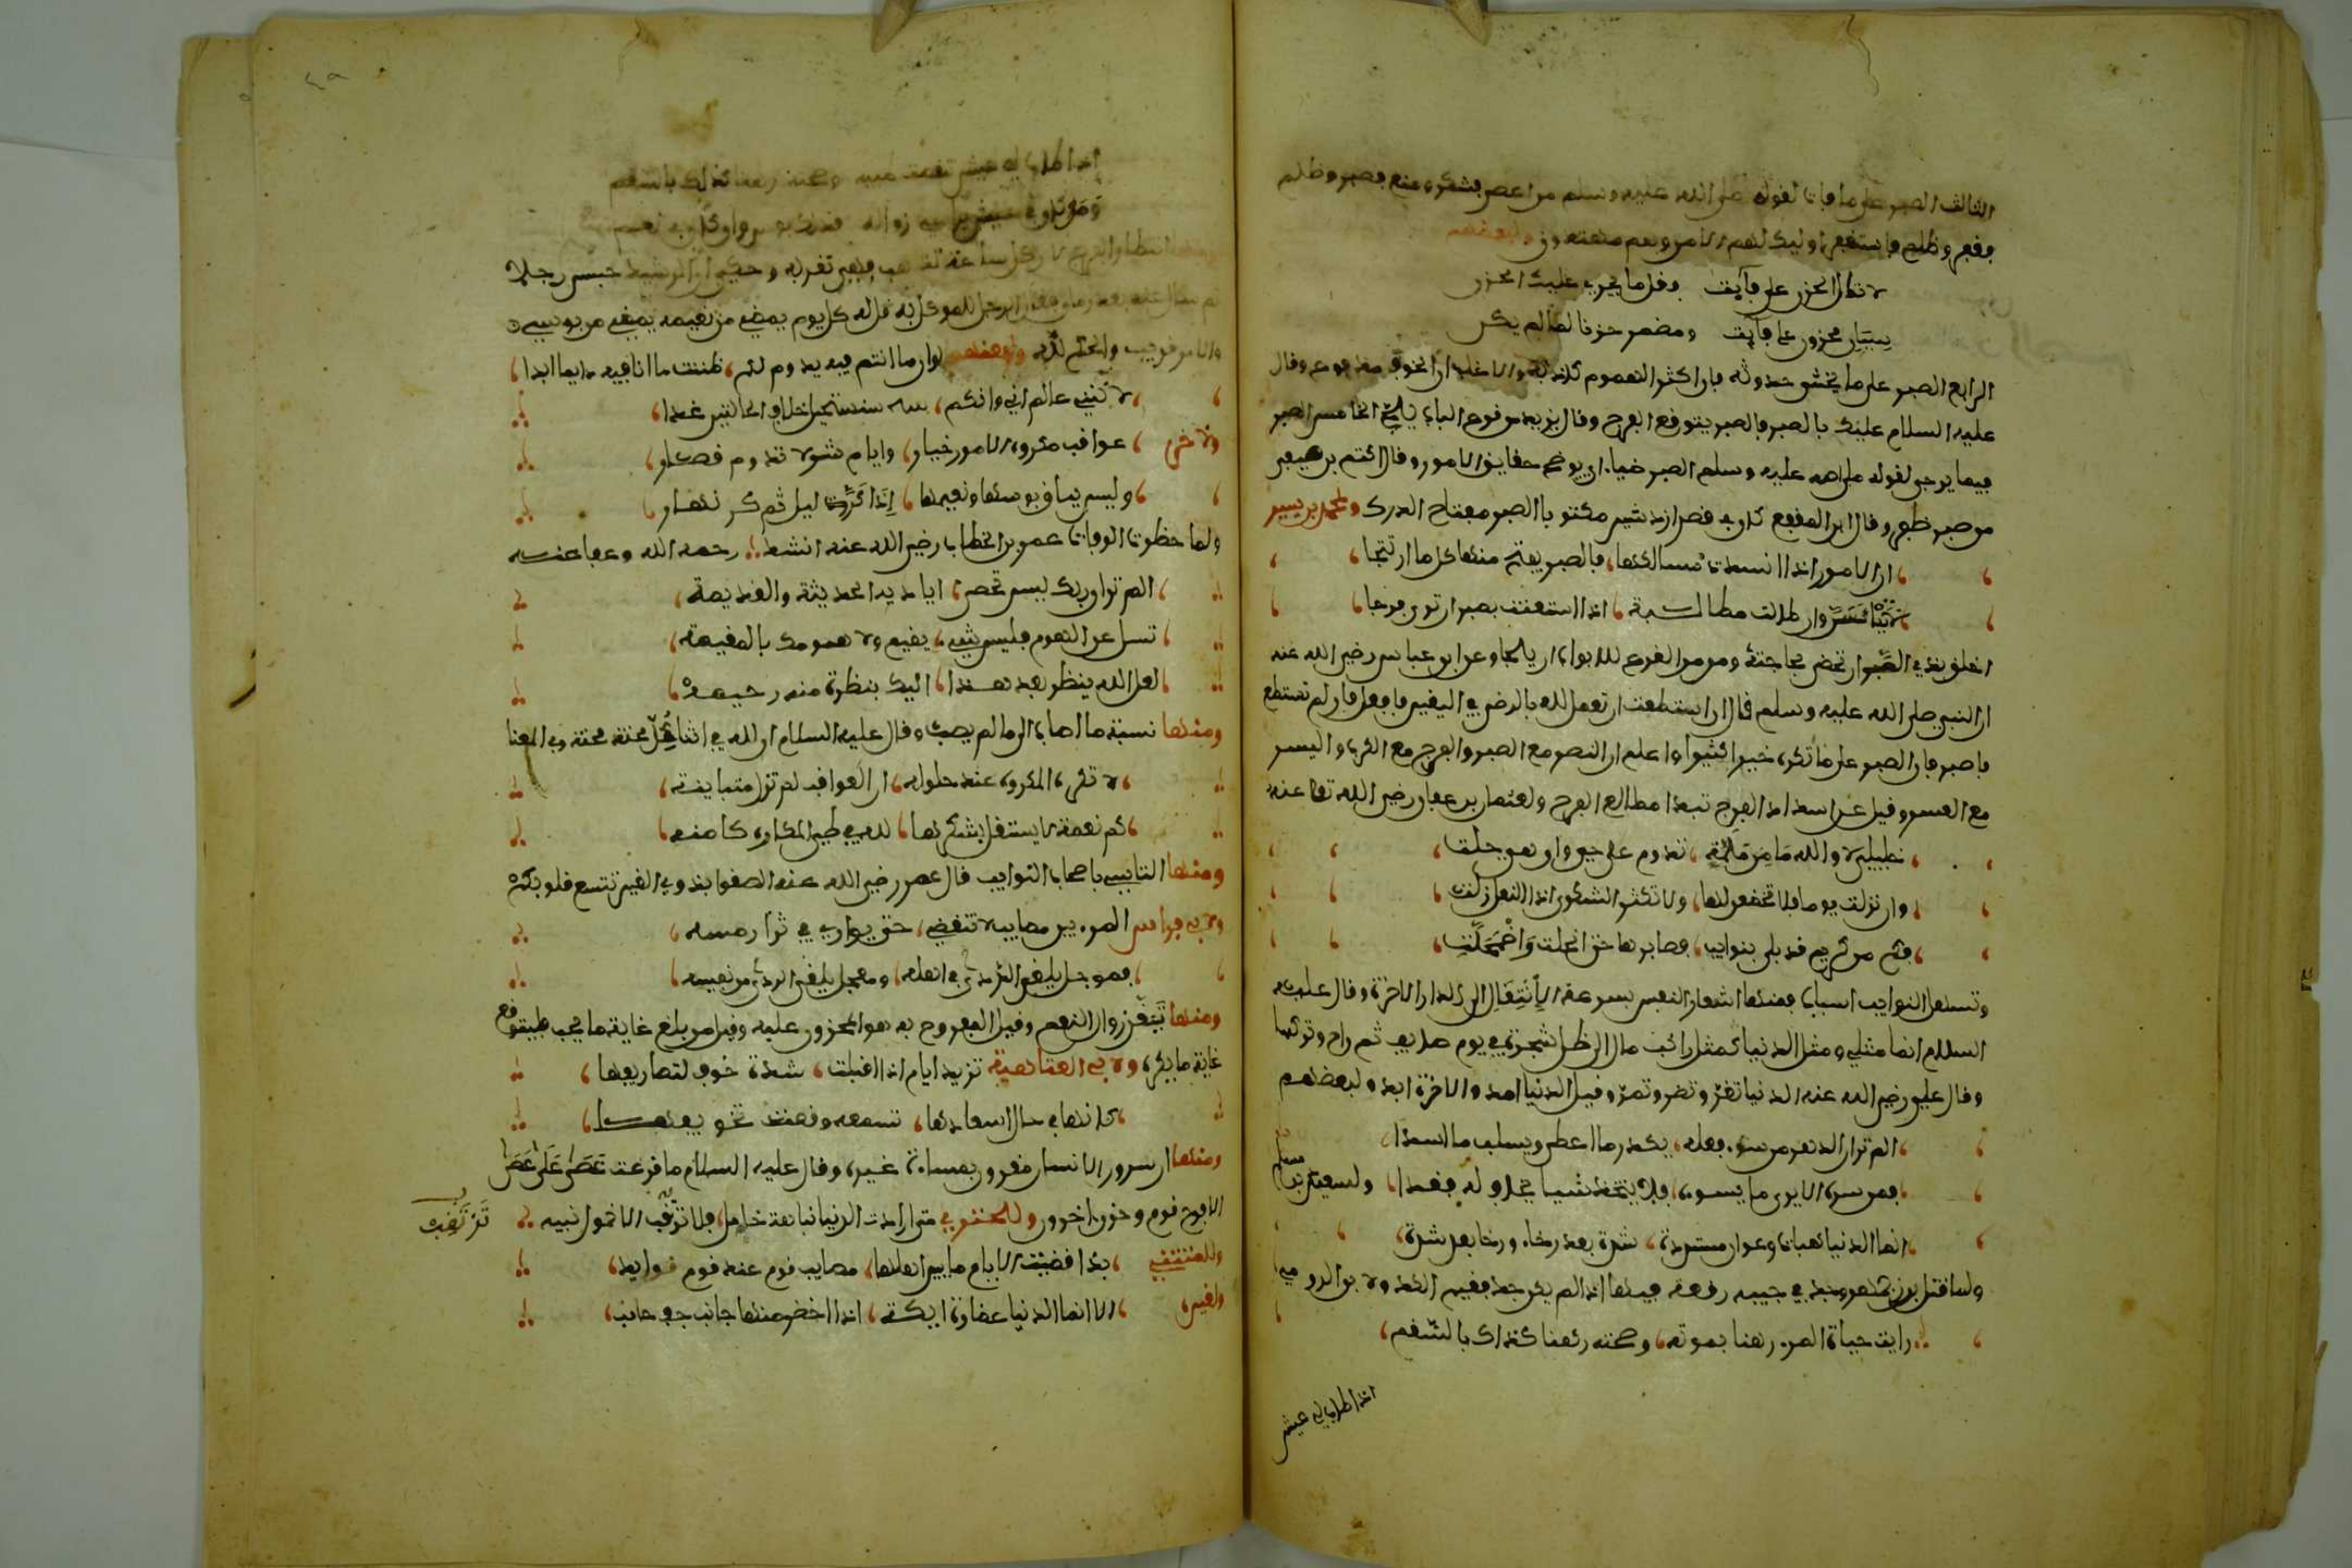 الثالث الصبر على ما فات لقوله صلى الله عليه وسلم من اعطي فشكر ومنع فصبر وظلم
فغفر وظلم فاستغفر اوليك لهم الامن وهم مهتدون ولبعضهم
لا تطل الحزن على فايت وقل ما يجدي عليك الحزن
سيان محزون على فايت ومضمر حزنا لما لم يكن
الرابع الصبر على ما يخشى حدوثه فان اكثر الهموم كاذبة والاغلب ان الخوف مدفوع وقال
عليه السلام عليك بالصبر فبالصبر يتوقع الفرج وقال من قرع الباب يلج الخامس الصبر
فيما يرجى لقوله صلى الله عليه وسلم الصبر ضياء ان يوضح حقايق الامور وقال اكثم بن صيفي
من صبر ظفر وقال ابن المقفع كان في قصر ازدشير مكتوبا الصبر مفتاح الدرك ولمحمد بن بسير
ان الامور اذا انسدت مسالكها، فالصبر يفتح منها كل ما ارتتجا
لا تيأسن وان طالت مطالبة اذا استعنت بصبر ان ترى فرجا
اخلق بذي الصبر ان تحضى بحاجته ومدمن القرع للابواب ان يلجا وعن ابن عباس رضي الله عنه
ان النبي صلى الله عليه وسلم قال ان استطعت ان تعمل لله بالرضى في اليقين فافعل فان لم تستطع
فاصبر فان الصبر على ما تكره خيرا كثيرا واعلم ان النصر مع الصبر والفرج مع الكرب واليسر
مع العسر وقيل عند انسداد الفرج تبدا مطالع الفرج ولعثمان بن عفان رضي الله تعا عنه
خليلي لا والله ما من ملمة، تدوم على حي وان هي جلت
وان نزلت يوما فلا تخضعن لها، ولا تكثر الشكوى اذا النعل زلت
فكم من كريم قد بلي بنوايب، فصابرها حتى انجلت واضمحلت
وتسهل النوايب اسباب فمنها اشعار النفس بسرعة الانتقال الى الدار الاخرة وقال عليه
السلام انما مثلي ومثل الدنيا كمثل راكب مال الى ظل شجرة في يوم صايف ثم راح وتركها
وقال علي رضي الله عنه الدنيا تغر وتضر وتمر وقيل الدنيا امد والاخرة ابد ولبعضهم
الم تر ان الدهر من سوء فعله، يكدر ما اعطى ويسلب ما اسدا
فمن سره الا يرى ما يسوءه، فلا يتخذ شيا يخاف له فقدا،
انما الدنيا هبات وعوار مستردة، شدة بعد رخاء ورخا بعد شدة
ولما قتل بزرجمهر وجد في جيبه رقعة فيها اذا لم يكن جد ففيم الكد ولابن الرومي
رايت حياة المرء رهنا بموته، وصحته رهنا كذاك بالسقم
اذا طاب لي عيش
اذا طاب لي عيش تنغصت وصحته رهنا كذاك بالسقم
ومن كان في عيش يراعي زواله فذلك في بوس وان كان في نعيم
ومنها انتظار الفرج لان كل ساعة تذهب فهي تقربه وحكي ان الرشيد حبس رجلا
ثم سال عنه بعد زمان فقال الرجل للموكل به قل له كل يوم يمضي من نعيمه يمضي من بوسي
والامر قريب والحكم لله ولبعضهم لو ان ما انتم فيه يدوم لكم، ظننت ما انا فيه دايما ابدا
لاكنني عالم اني وانكم، سنستحيل خلاف الحالتين غدا
ولاخر عواقب مكروه الامور خيار، وايام شر لا تدوم قصار
وليس يباق بوسها ونعيمها اذا كر ليل ثم كر نهار
ولما حظرت الوفات عمر بن الخطاب رضي الله عنه انشد رحمه الله وعفا عنه
الم تر ان ربك ليس تحصى، اياديه الحديثة والقديمة
تسل عن الهموم فليس شيء، يقيم ولا همومك بالمقيمة
لعل الله ينظر بعد هذا، اليك بنظرة منه رحيمه
ومنها نسبة ما اصاب الى ما لم يصب وقال عليه السلام ان لله في اثناء كل محنة محنة وفي المعنا
لا تكره المكروه عند حلوله، ان العواقب لم تزل متباينة
كم نعمة لا يستقل بشكرها، لله في طي المكاره كامنه
ومنها التاسي باصحاب النوايب قال عمر رضي الله عنه الصقوا بذوي الغير تتسع قلوبكم
ولابي فراس المرء بين مصايب لا تنقضي، حتى يوارى في ثرا رمسه
فموجل يلقى الردى في اهله، ومعجل يلقى الردى من نفسه
ومنها تيقن زوال النعم وقيل المفروح به هو المحزون عليه وقيل من بلغ غاية ما يحب فليتوقع
غاية ما يكره ولابي العتاهية تزيد ايام اذا اقبلت، شدة خوف لتصاريفها
كانها في حال اسعادها، تسمعه وقعت تخويفها
ومنها ان سرور الانسان مقرون بمساءة غيره وقال عليه السلام ما قرعت عصى على عصى
الا فرح قوم وحزن اخرون وللبحتري متى ارادت الدنيا نباهة خامل، فلا ترتقب الا خمول نبيه
وللمتنبي بذا قضت الايام ما بين اهلها، مصايب قوم عند قوم فوايد
ولغيره الا انما الدنيا غضارة ايكة، اذا اخضر منها جانب جف جانب